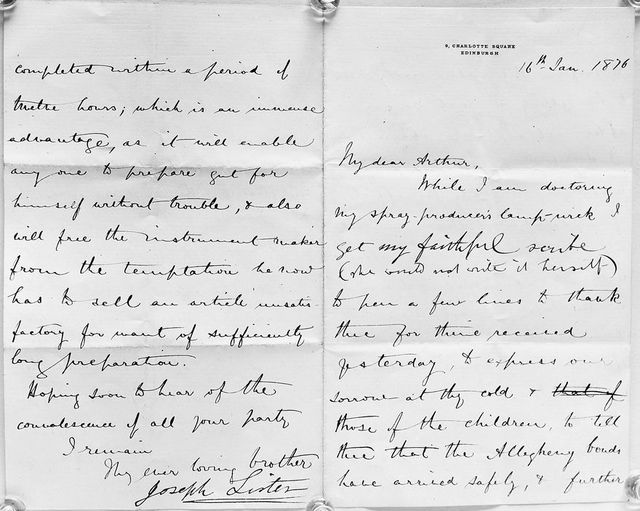 9, CHARLOTTE SQUARE
EDINBURGH
16th Jan. 1876
My dear Arthur,
While I am doctoring
my spray-producer's lamp-wick I
get my faithful scribe
(she would not write it herself)
to pen a few lines to thank
thee for thine received
yesterday, to express our
sorrow at thy cold & that of
those of the children, to tell
thee that the Allegheny bonds
have arrived safely, & further
completed within a period of
twelve hours; which is an immense
advantage, as it will enable
any one to prepare gut for
himself without trouble, & also
will free the instrument maker
from the temptation he now
has to sell an article unsatis-
factory for want of sufficiently
long preparation.
Hoping soon to hear of the
convalescence of all your party
I remain
My ever loving brother
Joseph Lister